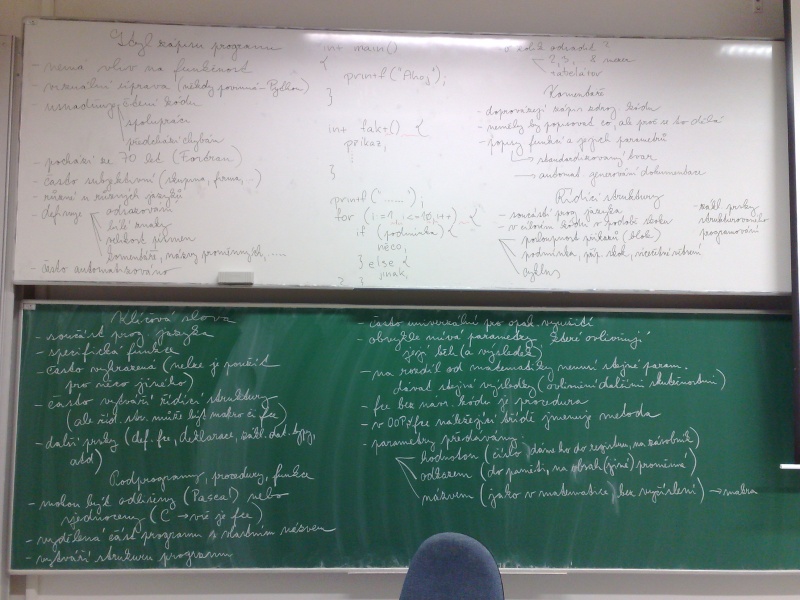 Styl zápisu programu
- nemá vliv na funkčnost
- vizuální úprava (někdy povinná - Python)
- usnadňuje čtení kódu
spolupráci
předcházení chybám
- pochází ze 70 let (Fortran)
- často subjektivní (skupina, firma, ..)
- různé u různých jazyků
- definuje
odsazování
bílé znaky
velikost písmen
komentáře, názvy proměnných, ....
- často automatizováno
int main()
{
printf("Ahoj");
}
int tak+() {
příkaz;
}
printf("......");
for (i=1, i<=10, i++) {
if (podminka) {
něco;
} else {
jinak;
}
odsadit?
2, 3, 8 mezer
tabelátor
Komentáře
- doprovázejí zápis zdroj. kódu
- neměly by popisovat co, ale proč se to dělá
- popisy funkcí a jejich parametrů
→ standardizovaný tvar
→ automat. generování dokumentace
Řídící struktury
- součástí prog. jazyka
- v cílovém kódu v podobě skoku
posloupnost příkazů (blok)
podmínka, příp. skok, vícecestné větvení
cyklus
- zákl. prvky
strukturovaného
programování
Klíčová slova
- součást prog. jazyka
- specifická funkce
- často vyhrazena (nelze je použít
pro něco jiného)
- často vytváří řídící struktury
(ale říd. str. může být makro či fce)
- další prvky (def. fce, deklarace, zákl. dat. typy,
atd)
Podprogramy, procedury, funkce
- mohou být odlišeny (Pascal) nebo
sjednoceny (C → vše je fce)
- vydělená část programu s vlastním názvem
- vytváří strukturu programu
- často univerzální pro opak. využití
- obvykle mívá parametry, které ovlivňují
její běh (a výsledek)
- na rozdíl od matematiky nemusí stejné param.
dávat stejné výsledky (ovlivnění dalšími skutečnostmi)
- fce bez návr. kódu je procedura
- v OOP: fce náležející třídě jmenuje metoda
- parametry předávány
hodnotou (číslo, dáme ho do registru, na zásobník)
odkazem (do paměti, na obsah (jiné) proměnné)
názvem (jako v matematice, bez vyčíslení) → makra